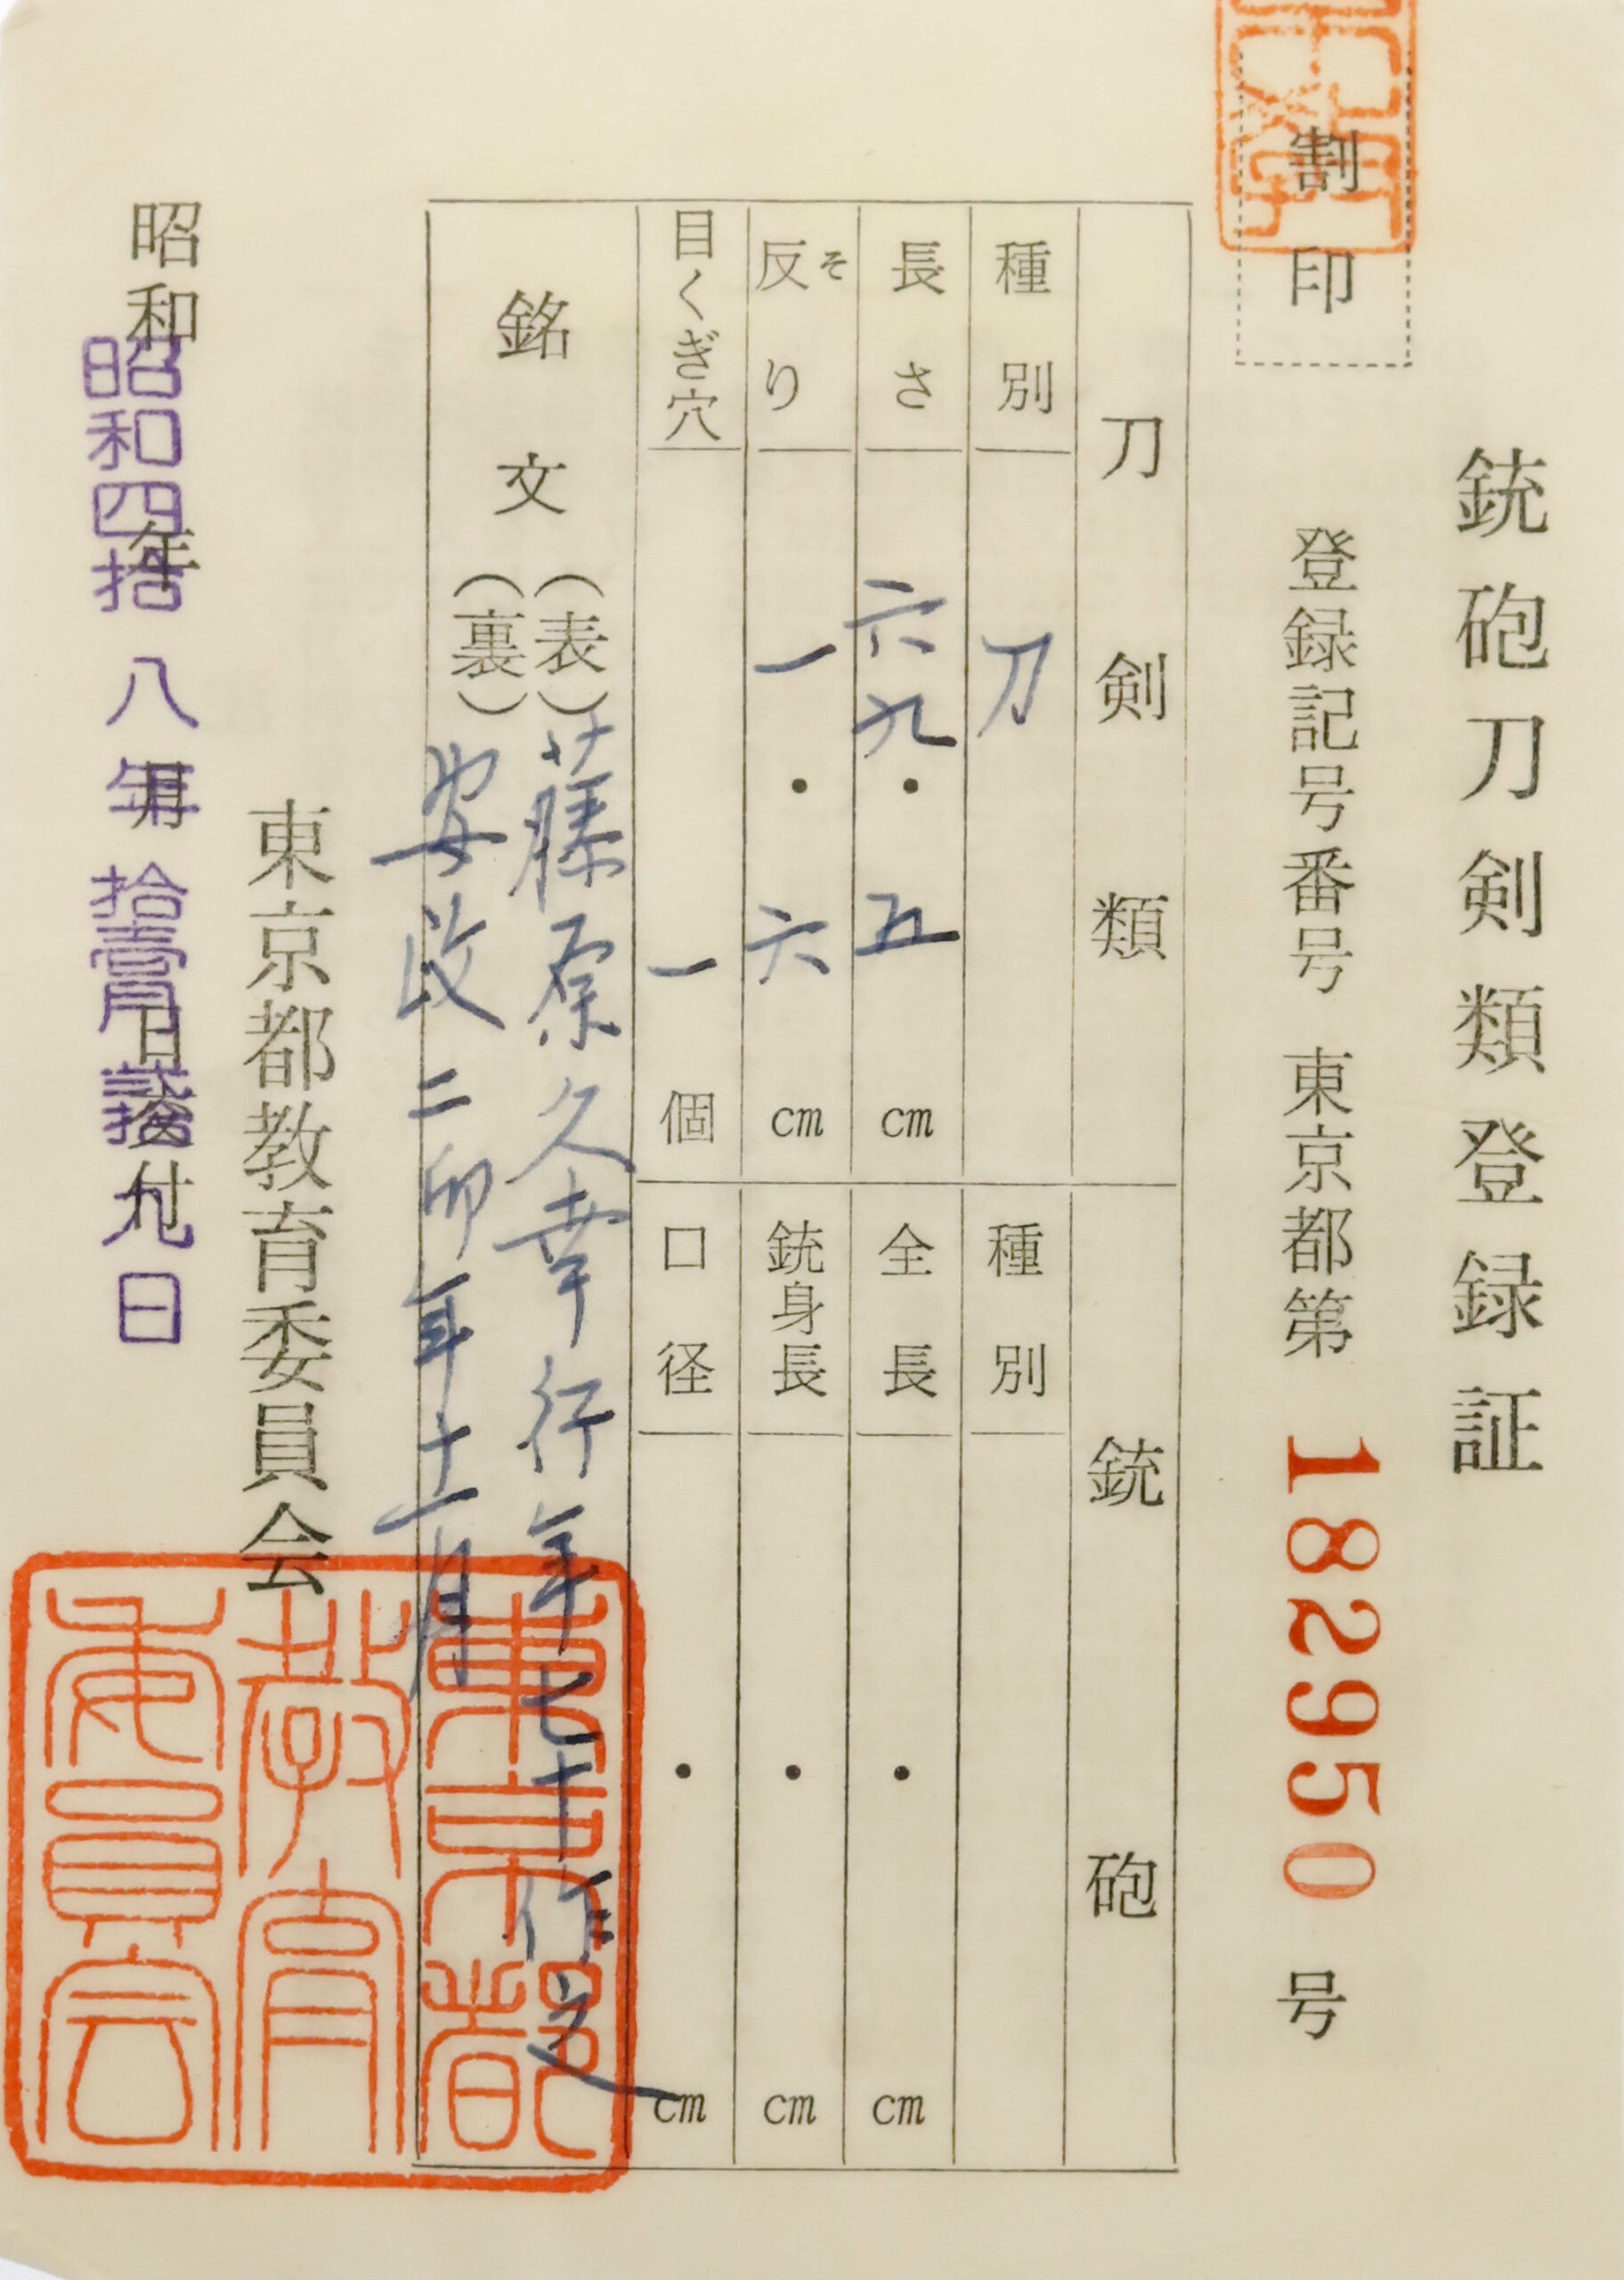 銃砲刀剣類登録証
割印
登録記号番号 東京都第 182950 号
刀剣類
種別 刀
長さ 六九・五 cm
反り そ 一・六 cm
目くぎ穴 一 個
銃砲
種別
全長 ・ cm
銃身長 ・ cm
口径 ・ cm
銘文
(表) 藤原久幸行年七十作之
(裏) 安政二卯年十一月
東京都教育委員会
昭和 年 月 日交付
昭和四拾八年拾壹月貳拾九日
東京都教育委員会